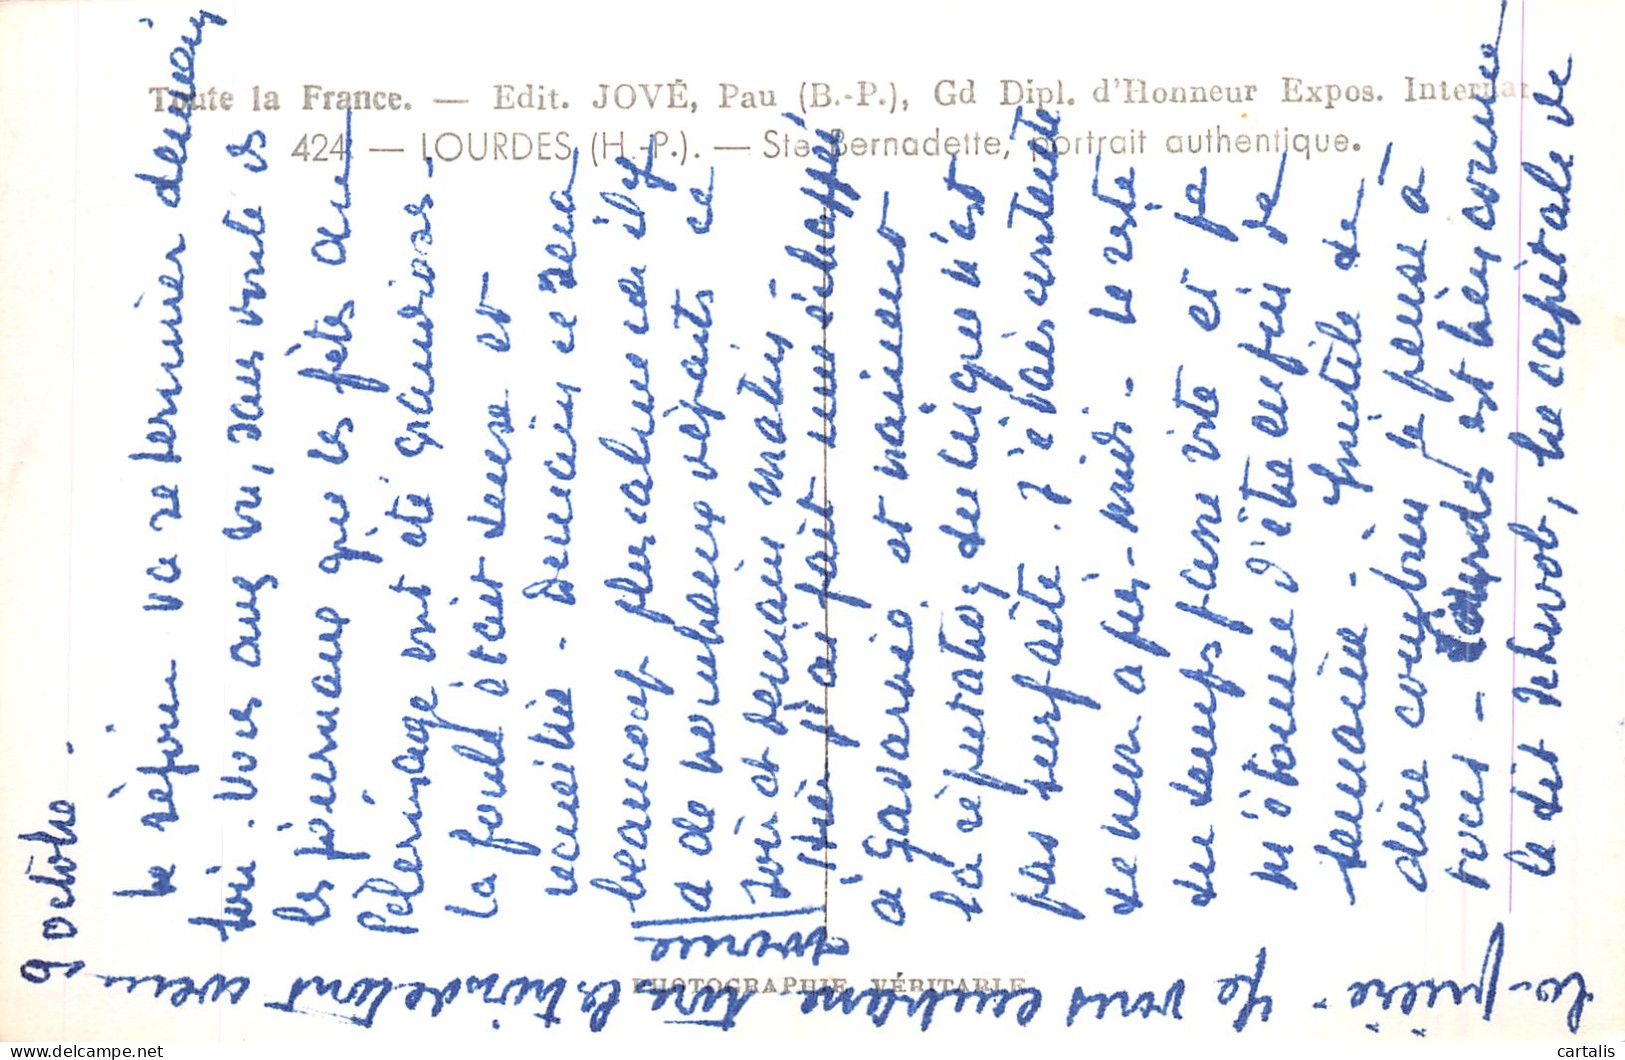 Toute la France. — Edit. JOVÉ, Pau (B.-P.), Gd Dipl. d'Honneur Expos. Internat.
424 — LOURDES (H.-P.). — Ste Bernadette, portrait authentique.
9 octobre
Le séjour va se terminer demain
soir. Vous avez vu, sans doute ds
les journaux que les fêtes du
Pèlerinage ont été grandioses -
La foule était dense et
recueillie - Demain ce sera
beaucoup plus calme car il y
a de nombreux départs ce
soir et demain matin -
Hier j'ai fait une échappée
à Gavarnie et vraiment
la réputation du cirque n'est
pas surfaite. J'étais contente
de mon après-midi - Le reste
du temps passe vite et je
m'étonne d'être en fin de
semaine - Inutile de
dire combien je pense à
vous - Lourdes est bien comme
le dit Schwob, la capitale de
la prière - Je vous embrasse
PHOTOGRAPHIE VÉRITABLE
cartalis